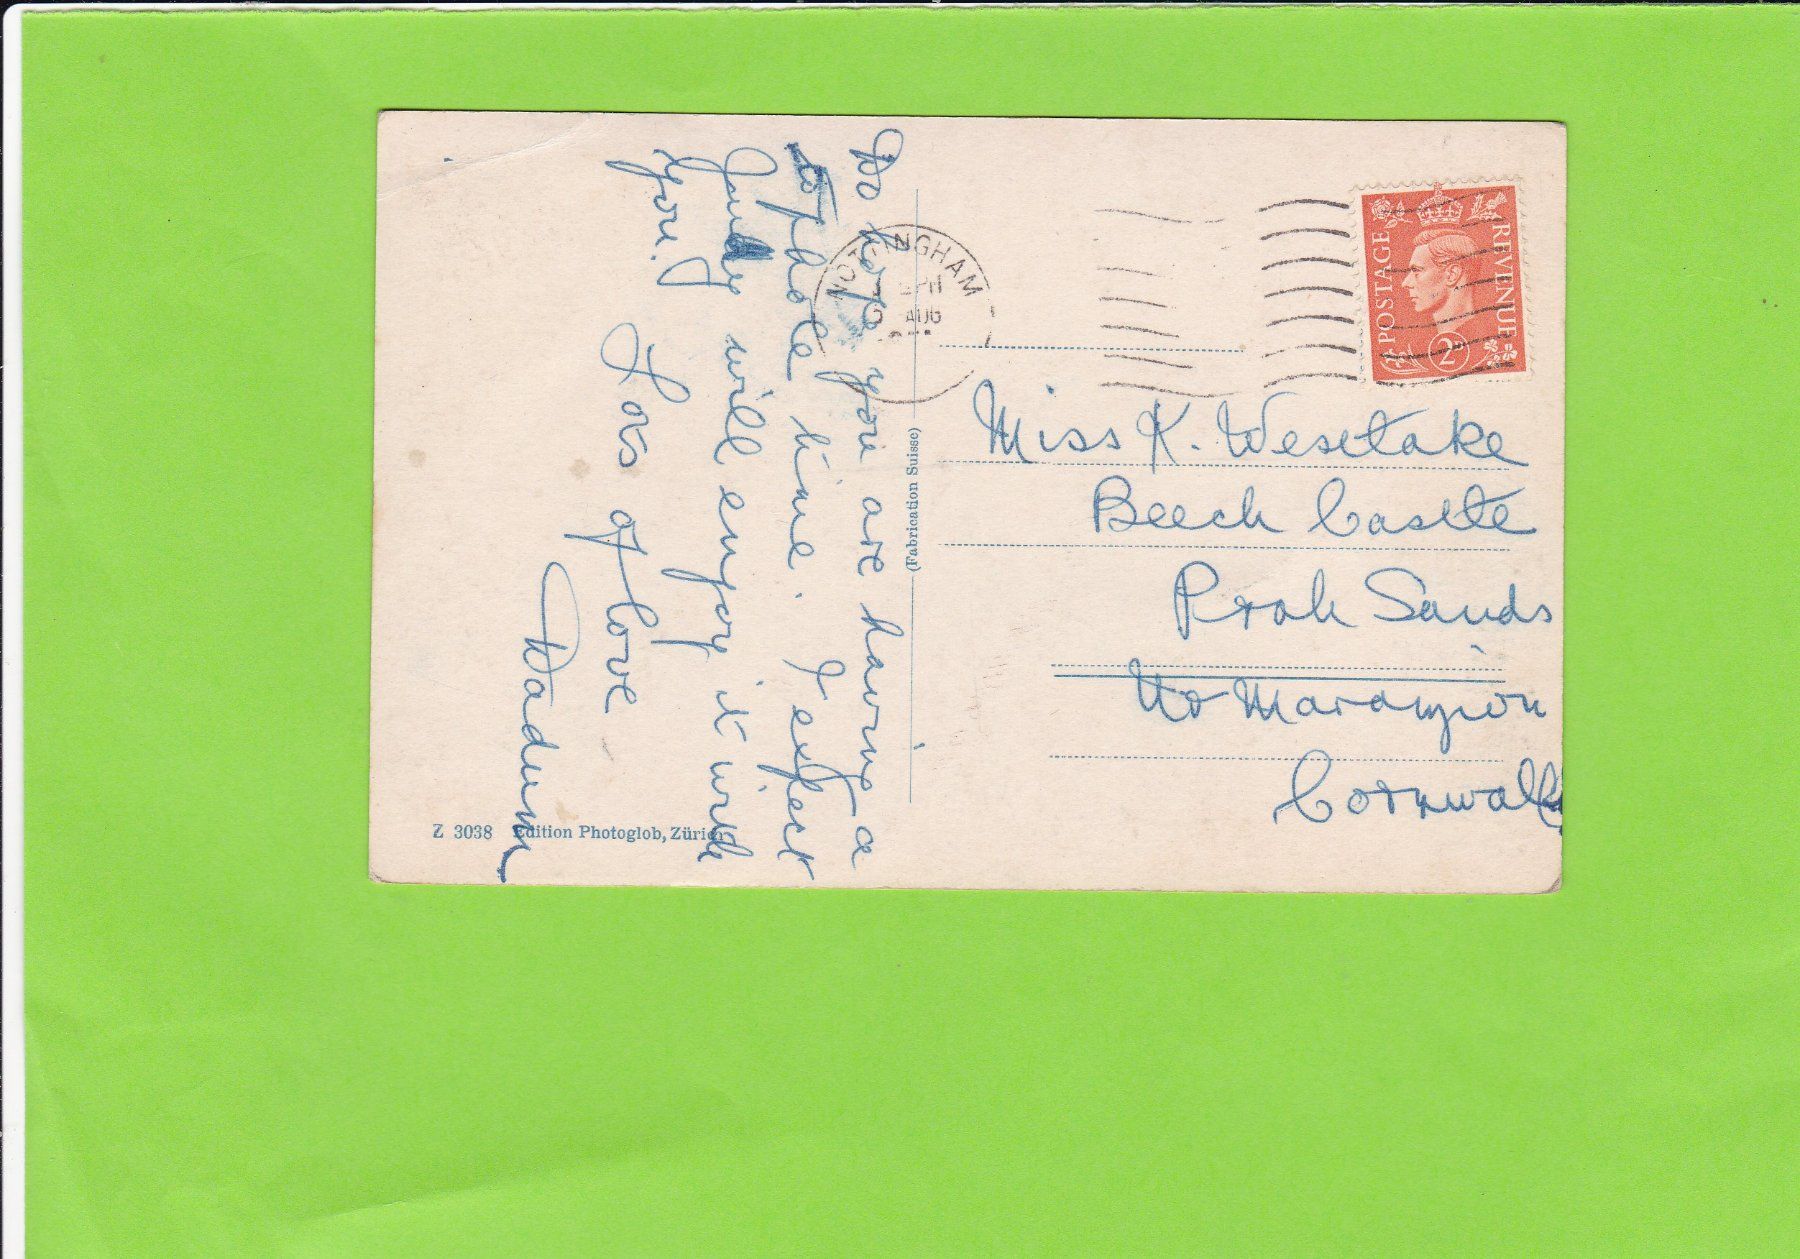 Do hope you are having a
tophole time. I expect
will enjoy it with
you! Lots of love
Z 3038 Edition Photoglob, Zürich
(Fabrication Suisse)
NOTTINGHAM
PM
AUG
POSTAGE REVENUE
2D
Miss K. Westlake
Beech Castle
Prah Sands
Nr Marazion
Cornwall